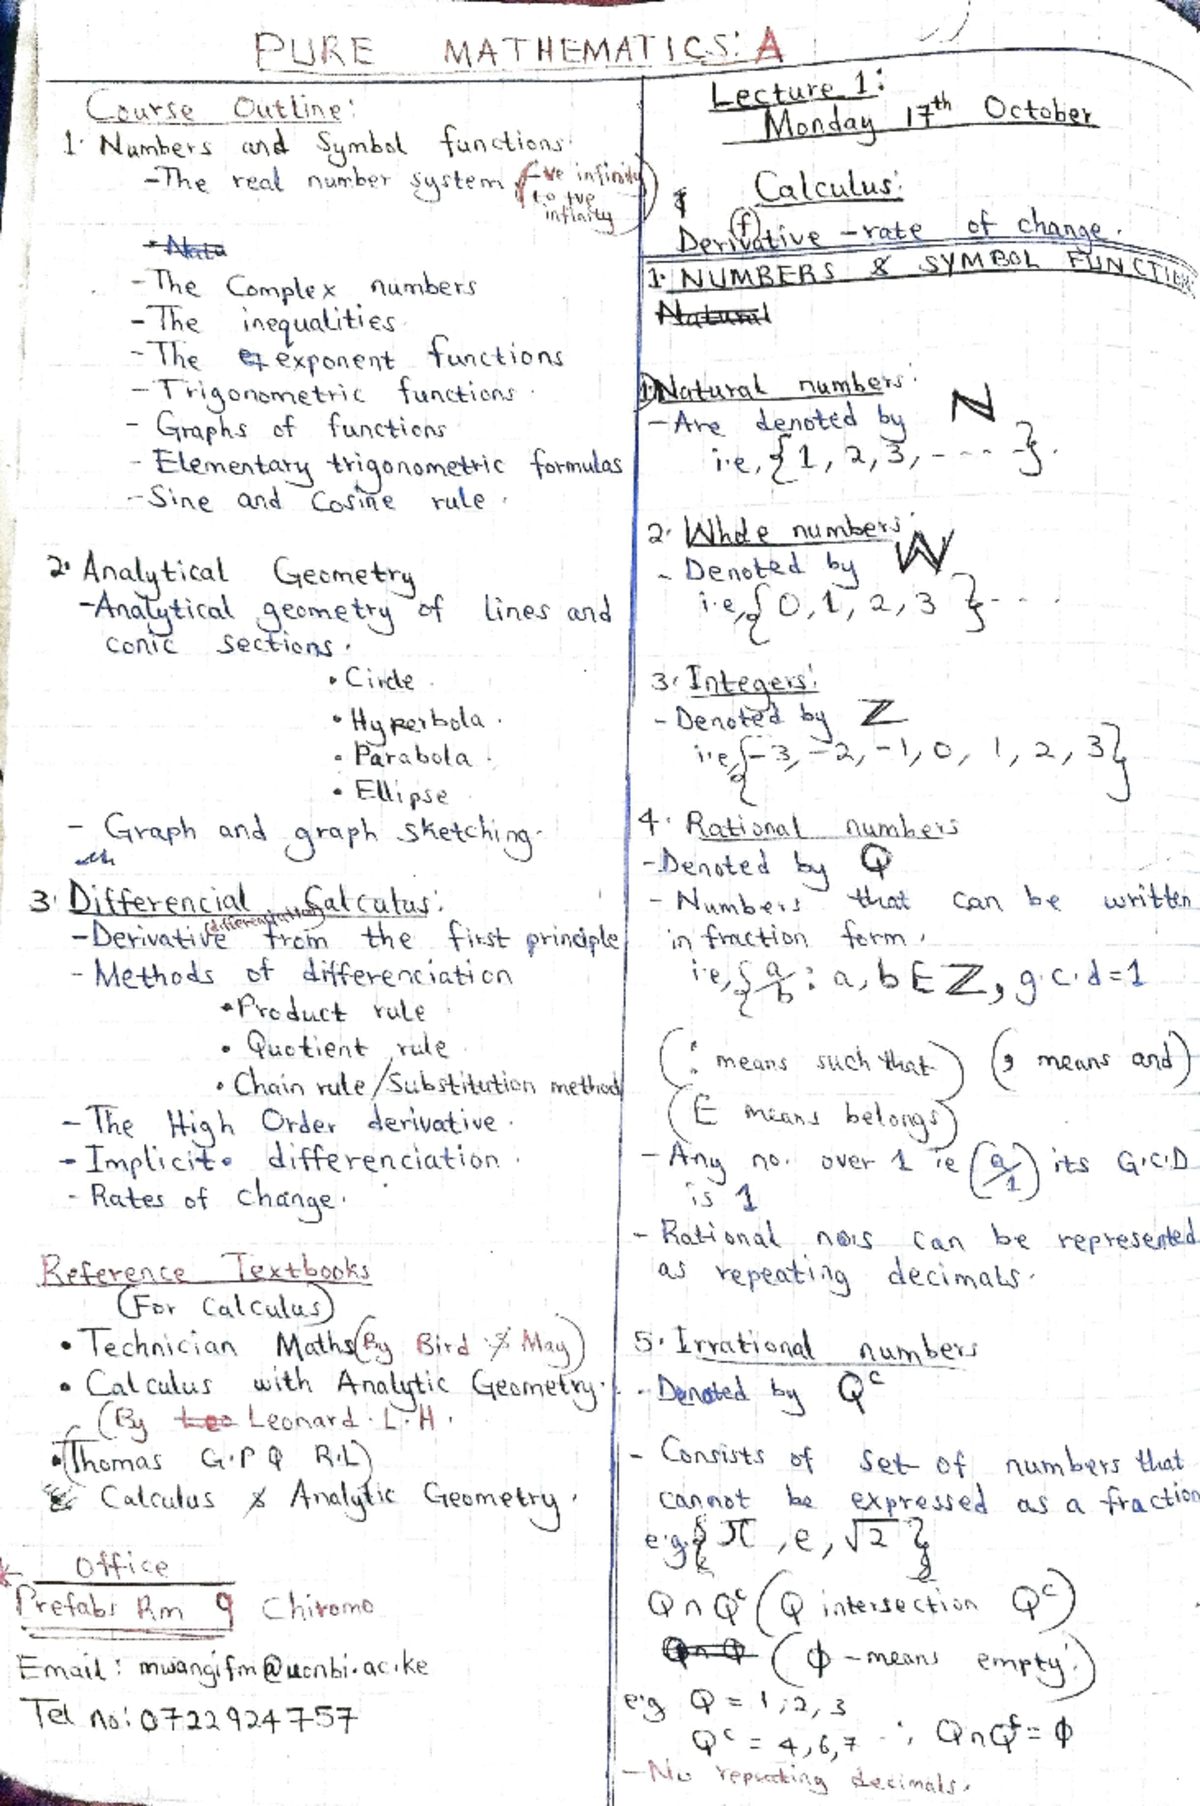 PURE MATHEMATICS: A
Course Outline:
1. Numbers and Symbol functions.
-The real number system (-ve infinity
to +ve
infinity)
- The Complex numbers
- The inequalities.
- The exponent functions
- Trigonometric functions.
- Graphs of functions
- Elementary trigonometric formulas
- Sine and Cosine rule.
2. Analytical Geometry
-Analytical geometry of lines and
conic sections.
• Circle.
• Hyperbola.
• Parabola.
• Ellipse
- Graph and graph sketching.
3. Differencial Calculus:
(differentiation)
-Derivative from the first principle
- Methods of differenciation
• Product rule
• Quotient rule
• Chain rule/Substitution method
- The High Order derivative.
- Implicit differenciation.
- Rates of change.
Reference Textbooks
(For Calculus)
• Technician Maths (By Bird & May)
• Calculus with Analytic Geometry.
(By Leonard. L. H.
• (Thomas G.P Q R.L)
Calculus & Analytic Geometry.
Office
Prefabs Rm 9 Chiromo
Email: mwangifm@uonbi.ac.ke
Tel no: 0722924757
Lecture 1:
Monday 17th October
Calculus:
(f)
Derivative - rate of change.
1. NUMBERS & SYMBOL FUNCTIONS
Natural
1) Natural numbers:
- Are denoted by ℕ
i.e, {1, 2, 3, - - - -}.
2. Whole numbers:
- Denoted by W
i.e, {0, 1, 2, 3 } - - -
3. Integers:
- Denoted by ℤ
i.e, {-3, -2, -1, 0, 1, 2, 3}
4. Rational numbers
-Denoted by Q
- Numbers that can be written
in fraction form.
i.e, { a/b : a, b E ℤ, g.c.d = 1
(: means such that) (, means and)
(E means belongs)
- Any no. over 1 ie (a/1) its G.C.D
is 1
- Rational nos can be represented
as repeating decimals.
5. Irrational numbers
- Denoted by Qᶜ
- Consists of set of numbers that
cannot be expressed as a fraction
e.g { π, e, √2 }
Q∩Qᶜ (Q intersection Qᶜ)
(ϕ - means empty.)
e.g Q = 1, 2, 3
Qᶜ = 4, 6, 7 ∴ Q∩Qᶜ = ϕ
- No repeating decimals.